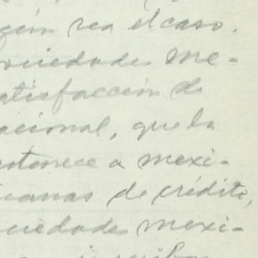 gún sea el caso.
ociedades me-
atisfacción de
acional, que la
ertenece a mexi-
canas de crédito,
ciedades mexi-